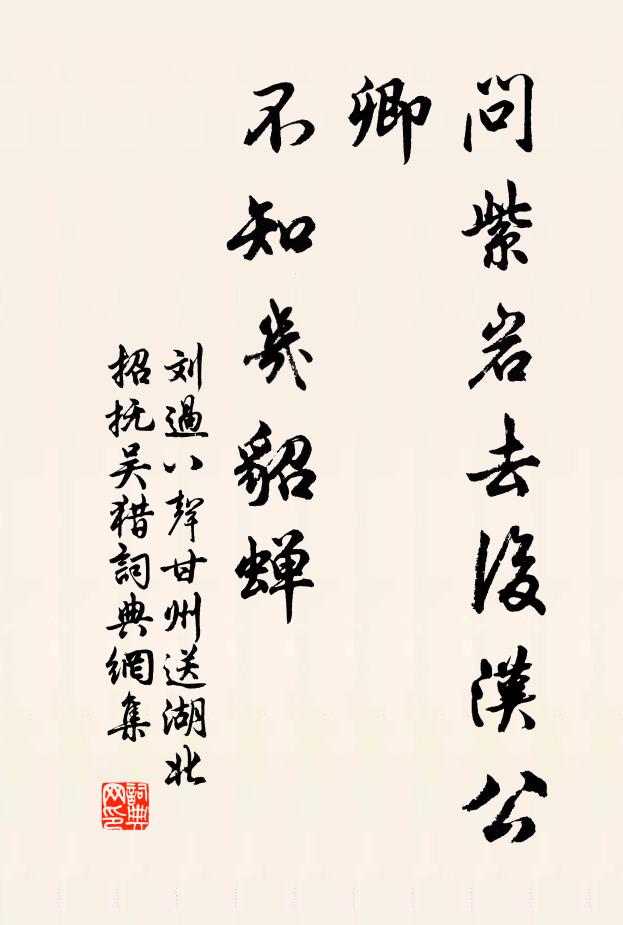 問紫岩去後漢公
卿
不知幾貂蟬
刘過八聲甘州送湖北
招抚吴猎詞典網集
詞典网印